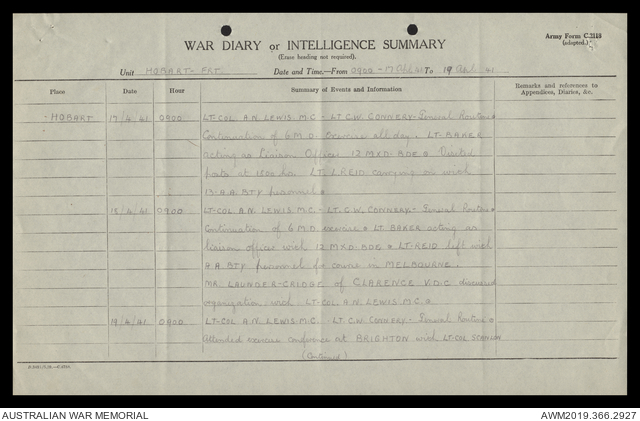 Army Form C.2118
(adapted.)
WAR DIARY or INTELLIGENCE SUMMARY
(Erase heading not required).
Unit HOBART-FRT Date and Time.—From 0900 - 17 Apl 41 To 19 Apl 41
Place Date Hour Summary of Events and Information Remarks and references to
Appendices, Diaries, &c.
HOBART 17/4/41 0900 LT-COL A.N. LEWIS. M.C. - LT. C.W. CONNERY - General Routine
Continuation of 6 M.D. Exercise all day. LT. BAKER
acting as Liaison Officer 12 MXD. BDE. Visited
forts at 1800 hrs LT. L. REID carrying on with
13-A.A. BTY personnel
18/4/41 0900 LT-COL A.N. LEWIS. M.C. - LT. C.W. CONNERY - General Routine
Continuation of 6 M.D. exercise LT BAKER acting as
liaison officer with 12 MXD. BDE LT-REID left with
A.A. BTY personnel for course in MELBOURNE.
MR. LAUNDER-CRIDGE of CLARENCE V.D.C discussed
organization with LT-COL A.N. LEWIS. M.C.
19/4/41 0900 LT-COL A.N. LEWIS. M.C. LT. C.W. CONNERY - General Routine
Attended exercise conference at BRIGHTON with LT-COL SCANLON
(Continued)
AUSTRALIAN WAR MEMORIAL AWM2019.366.2927